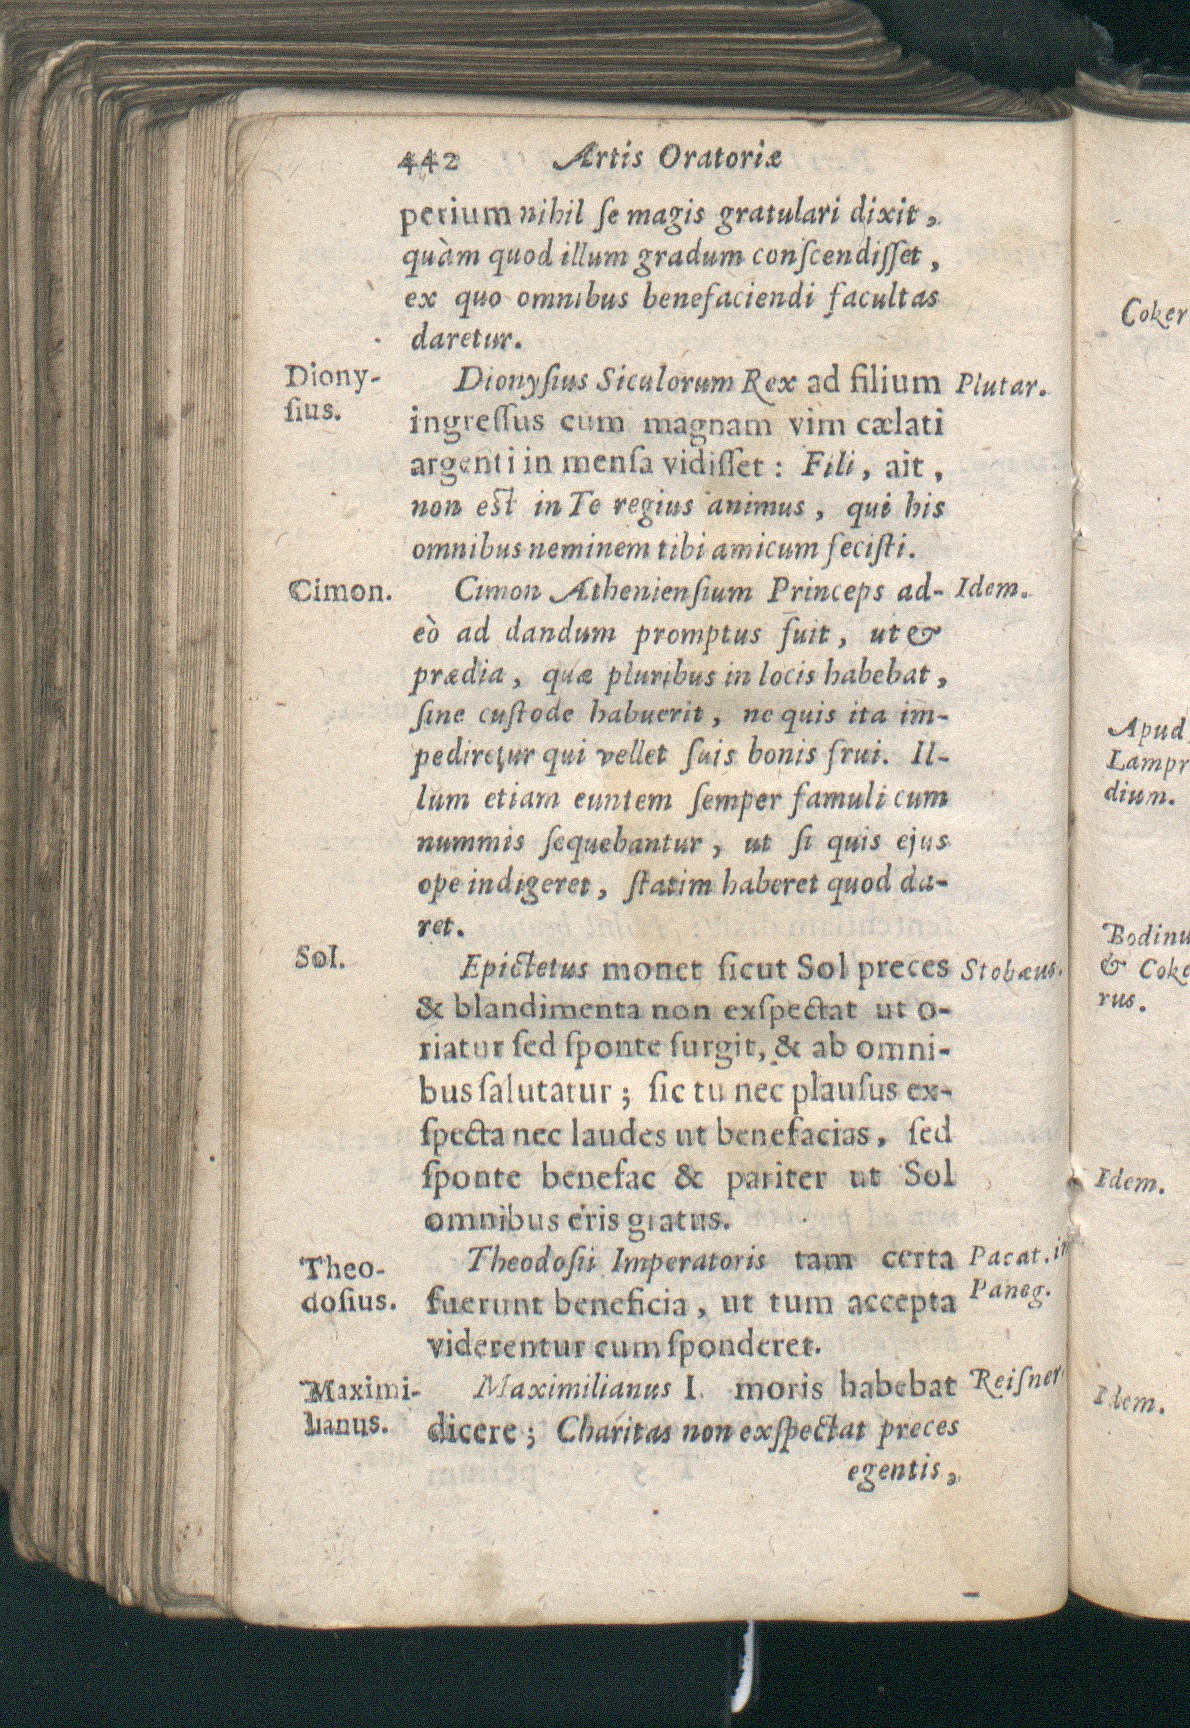 442 Artis Oratoriæ
perium nihil ſe magis gratulari dixit,
quàm quod illum gradum conſcendiſſet,
ex quo omnibus benefaciendi facultas
daretur.
Diony-
ſius.
Dionyſius Siculorum Rex ad filium
Plutar.
ingreſſus cum magnam vim cælati
argenti in menſa vidiſſet: Fili, ait,
non eſt in Te regius animus, qui his
omnibus neminem tibi amicum feciſti.
Cimon.
Cimon Athenienſium Princeps ad-
Idem.
eò ad dandum promptus fuit, ut &
prædia, quæ pluribus in locis habebat,
ſine cuſtode habuerit, ne quis ita im-
pediretur qui vellet ſuis bonis frui. Il-
lum etiam euntem ſemper famuli cum
nummis ſequebantur, ut ſi quis ejus
ope indigeret, ſtatim haberet quod da-
ret.
Sol.
Epictetus monet ſicut Sol preces
Stobæus.
& blandimenta non exſpectat ut o-
riatur ſed ſponte ſurgit, & ab omni-
bus ſalutatur; ſic tu nec plauſus ex-
ſpecta nec laudes ut benefacias, ſed
ſponte benefac & pariter ut Sol
omnibus eris gratus.
Theo-
doſius.
Theodoſii Imperatoris tam certa
Pacat. in
Paneg.
fuerunt beneficia, ut tum accepta
viderentur cum ſponderet.
Maximi-
lianus.
Maximilianus I. moris habebat
Reiſner
dicere; Charitas non exſpectat preces
egentis,
Coker
Apud
Lampr
dium.
Bodinu
& Coke
rus.
Idem.
Idem.